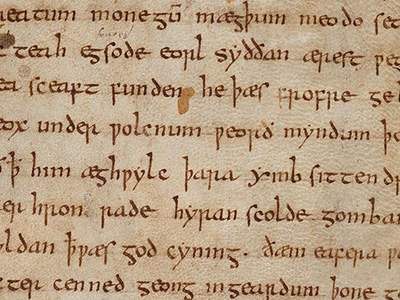 reatum monegū mægþum meodo set
teah egsode eorl syððan ærest ƿe
ea sceaft funden he þæs frofre ge
eox under ƿolcnum ƿeorð myndum þ
ꝥ him æghƿylc þara ymb sittendr
er hron rade hyran scolde gomban
yldan þƿæs god cyning. ðæm eafera ƿ
fter cenned geong in geardum þone g